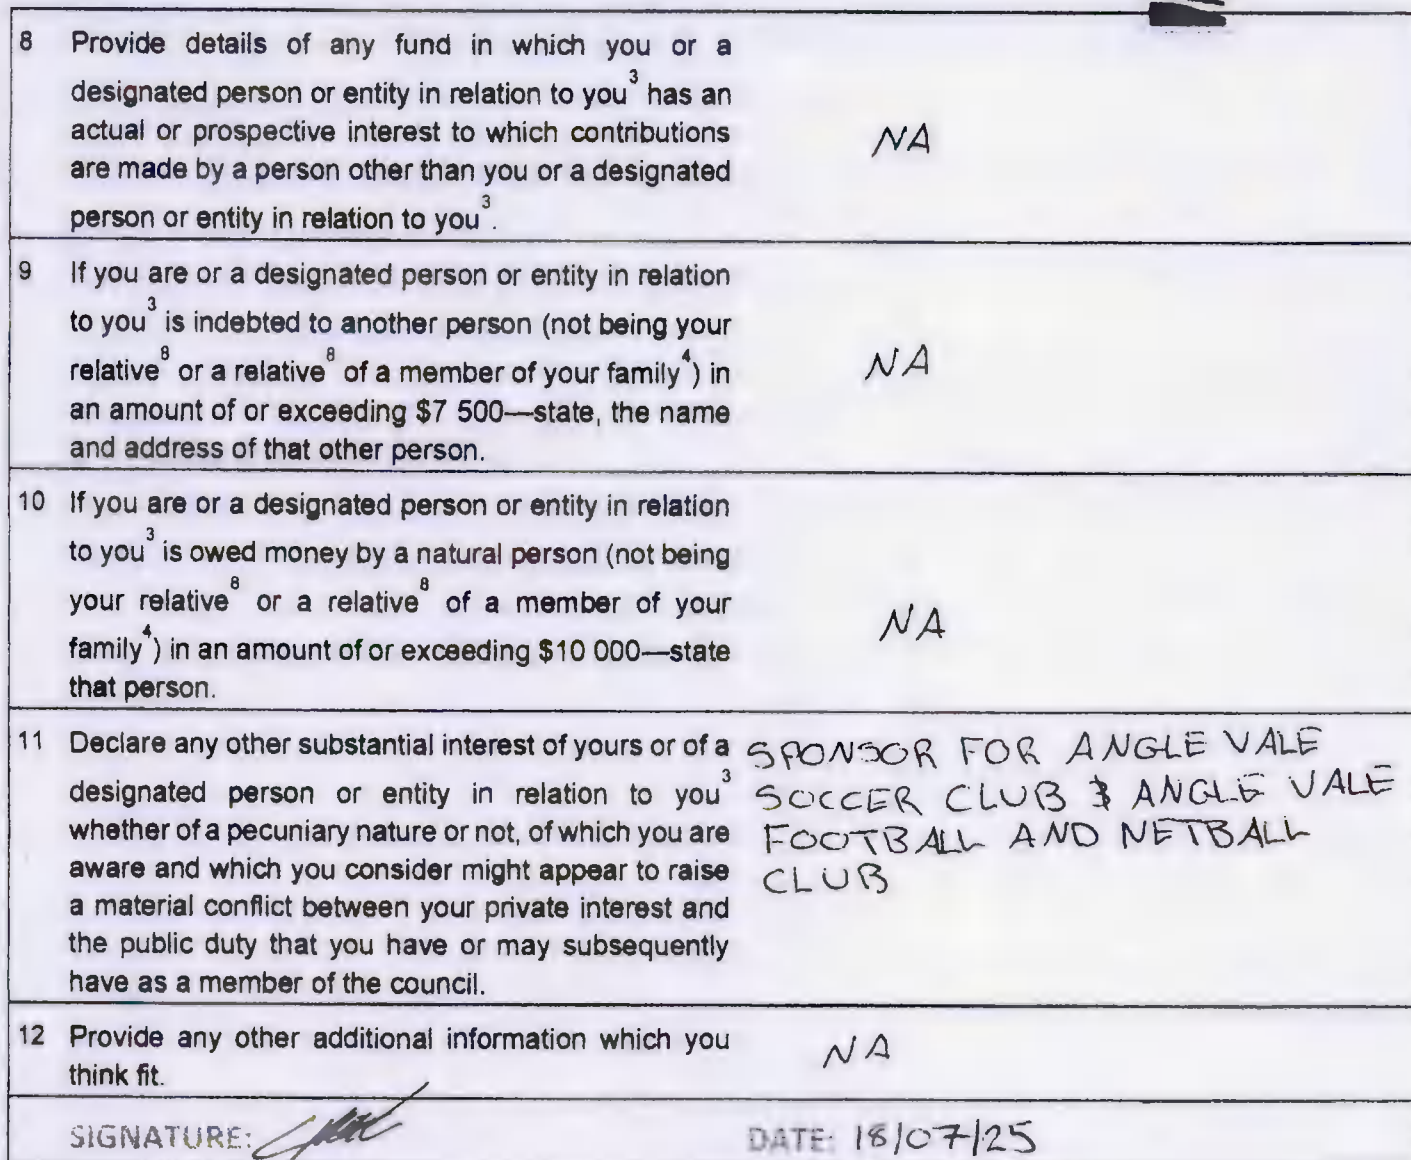 8 Provide details of any fund in which you or a
designated person or entity in relation to you³ has an
actual or prospective interest to which contributions
are made by a person other than you or a designated
person or entity in relation to you³.
NA
9 If you are or a designated person or entity in relation
to you³ is indebted to another person (not being your
relative⁸ or a relative⁸ of a member of your family⁴) in
an amount of or exceeding $7 500—state, the name
and address of that other person.
NA
10 If you are or a designated person or entity in relation
to you³ is owed money by a natural person (not being
your relative⁸ or a relative⁸ of a member of your
family⁴) in an amount of or exceeding $10 000—state
that person.
NA
11 Declare any other substantial interest of yours or of a
designated person or entity in relation to you³
whether of a pecuniary nature or not, of which you are
aware and which you consider might appear to raise
a material conflict between your private interest and
the public duty that you have or may subsequently
have as a member of the council.
SPONSOR FOR ANGLE VALE
SOCCER CLUB & ANGLE VALE
FOOTBALL AND NETBALL
CLUB
12 Provide any other additional information which you
think fit.
NA
SIGNATURE:
DATE: 18/07/25